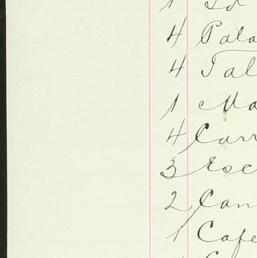 1
4 Pala
4 Tal
1 Ma
4 Carr
3 Esc
2 Can
1 Cafe